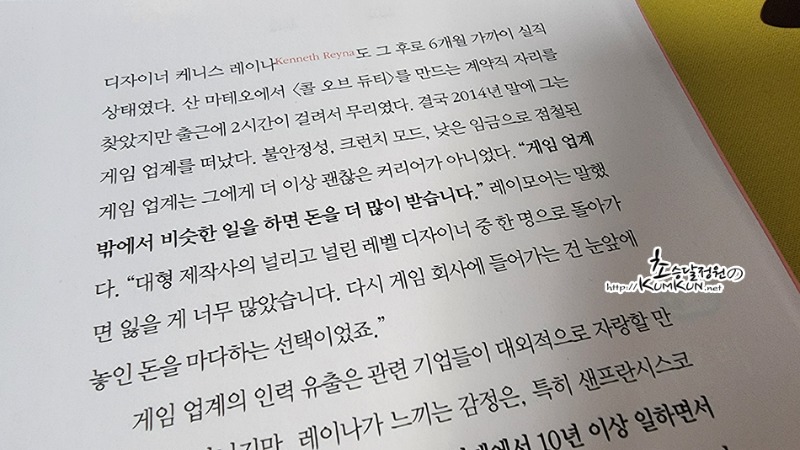 디자이너 케니스 레이나Kenneth Reyna도 그 후로 6개월 가까이 실직
상태였다. 산 마테오에서 〈콜 오브 듀티〉를 만드는 계약직 자리를
찾았지만 출근에 2시간이 걸려서 무리였다. 결국 2014년 말에 그는
게임 업계를 떠났다. 불안정성, 크런치 모드, 낮은 임금으로 점철된
게임 업계는 그에게 더 이상 괜찮은 커리어가 아니었다. “게임 업계
밖에서 비슷한 일을 하면 돈을 더 많이 받습니다.” 레이모어는 말했
다. “대형 제작사의 널리고 널린 레벨 디자이너 중 한 명으로 돌아가
면 잃을 게 너무 많았습니다. 다시 게임 회사에 들어가는 건 눈앞에
놓인 돈을 마다하는 선택이었죠.”
초승달정원の
http://KUMKUN.net
게임 업계의 인력 유출은 관련 기업들이 대외적으로 자랑할 만
레이나가 느끼는 감정은, 특히 샌프란시스코
10년 이상 일하면서